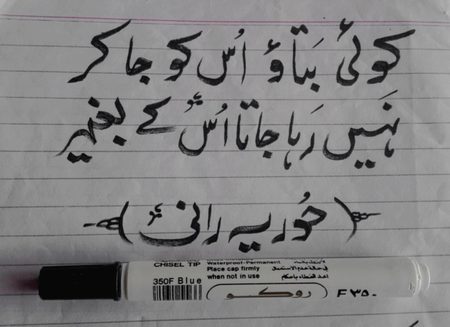 کوئی بَتاؤ اُس کو جا کر
نَہیں رَہا جاتا اُس کے بغیر
(حُوریہ رانی)
CHISEL TIP
Waterproof-Permanent
350F Blue
Place cap firmly
when not in use
روکو
F ۳۵۰